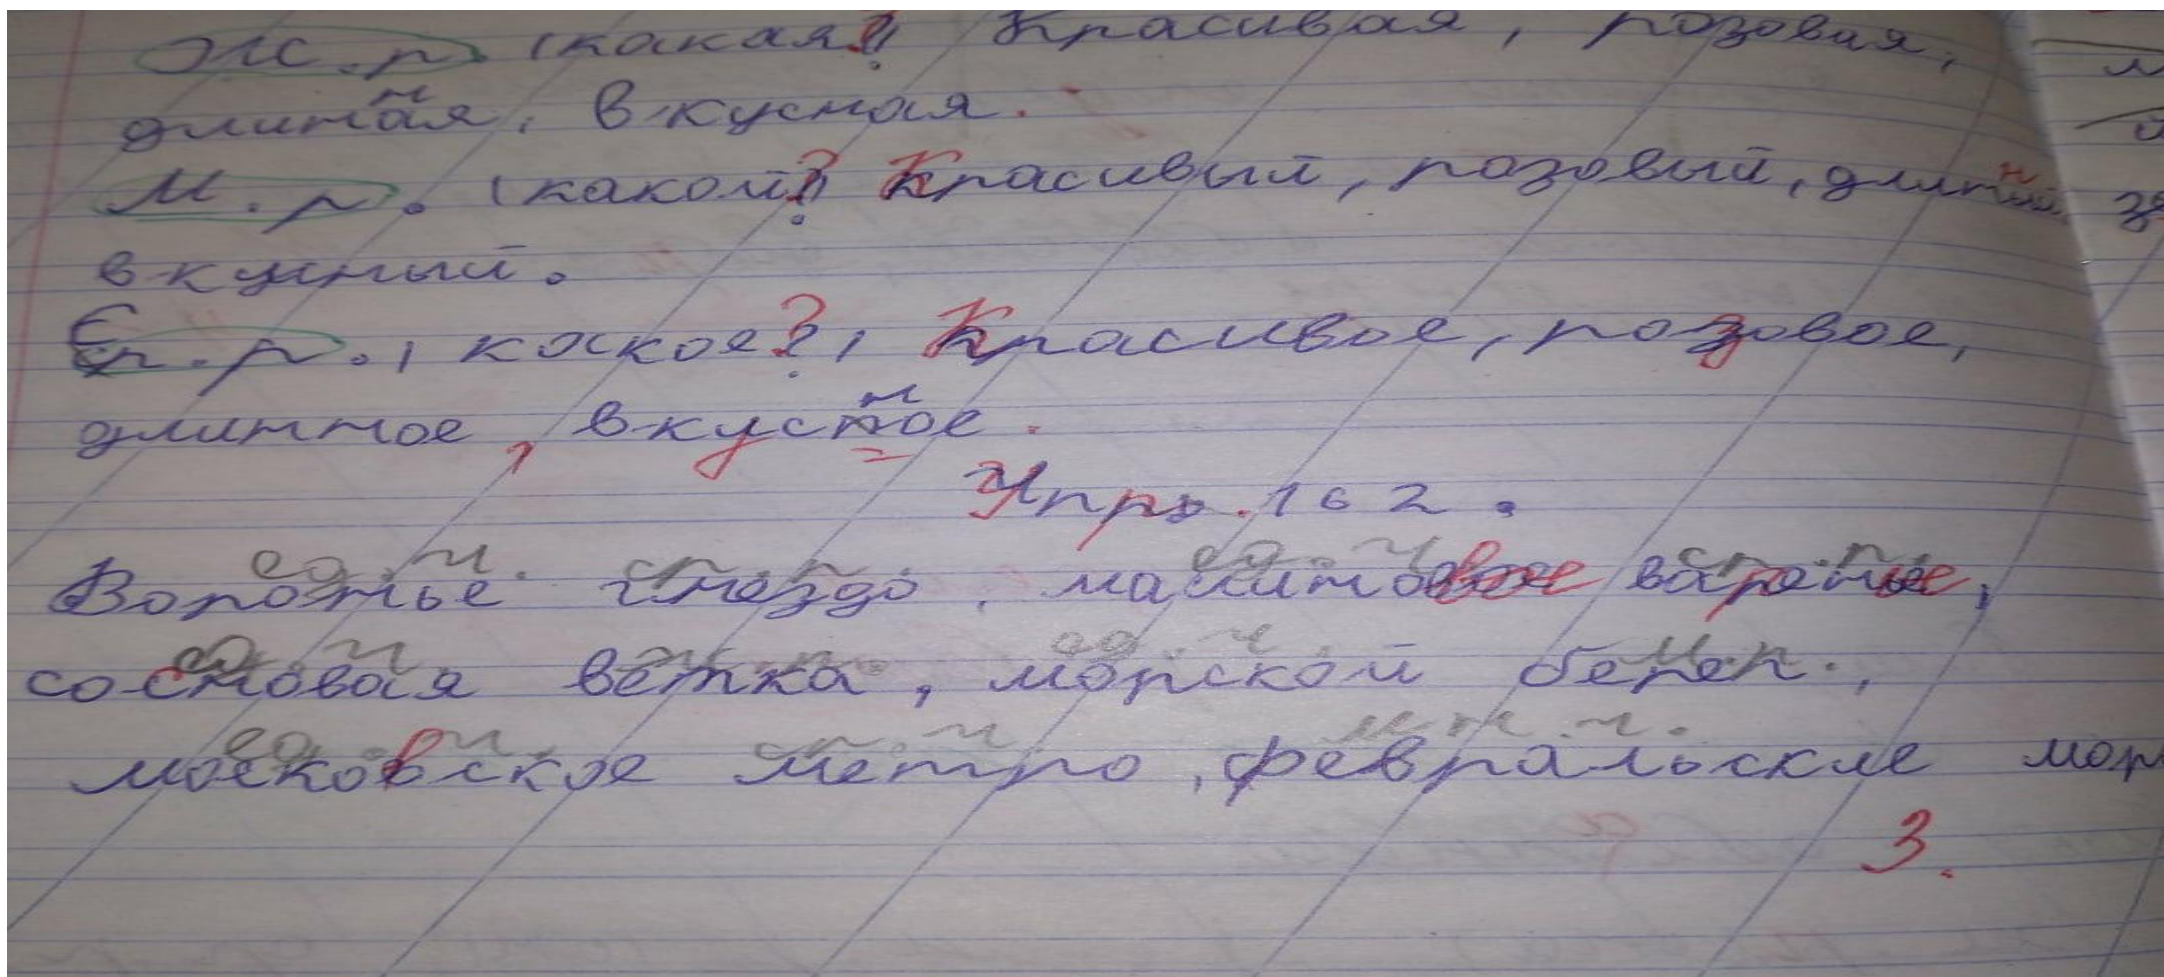 Ж.р. (какая?) Красивая, розовая,
длинная, вкусная.
М.р. (какой?) Красивый, розовый, длинный,
вкусный.
С.р. (какое?) Красивое, розовое,
длинное, вкусное.
Упр. 162.
ед.ч. ср.р. ед.ч. ср.р.
Воронье гнездо, малиновое варенье,
ед.ч. ж.р. ед.ч. м.р.
сосновая ветка, морской берег,
ед.ч. ср.р. мн.ч.
московское метро, февральские мор
3.